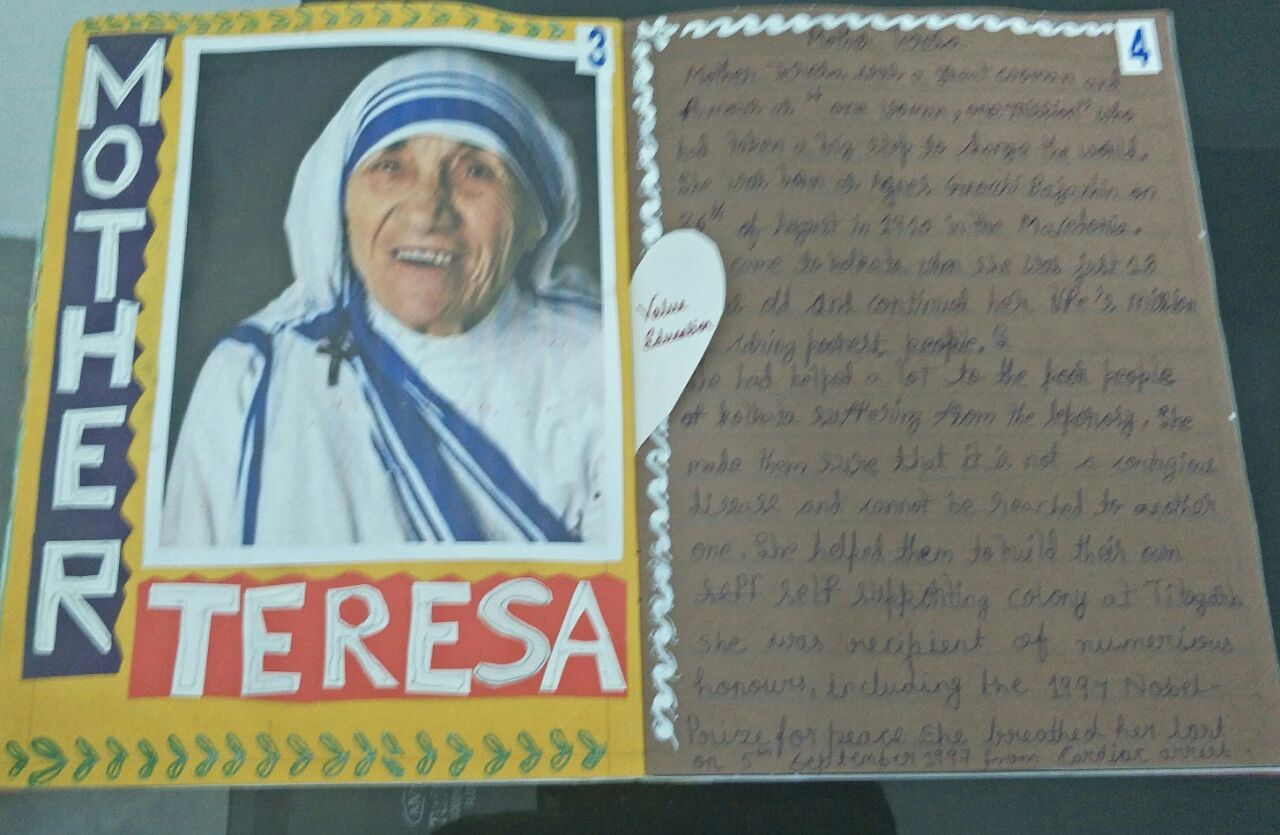 MOTHER
TERESA
3
4
Value
Education
Mother Teresa was a great woman and
"one woman, one mission" who
had taken a big step to the world.
She was born as Agnes on
26th of August in 1910 in the Macedonia.
came to when she was just 18
old and continued her life's mission
people.
She had helped a lot to the poor people
of kolkata suffering from the . She
made them sure that it is not a contagious
disease and cannot be to another
one. She helped them to build their own
self self supporting colony at
she was recipient of numerious
honours, including the 1997 Nobel-
Prize for peace she breathed her last
on 5th September 1997 from Cardiac arrest.